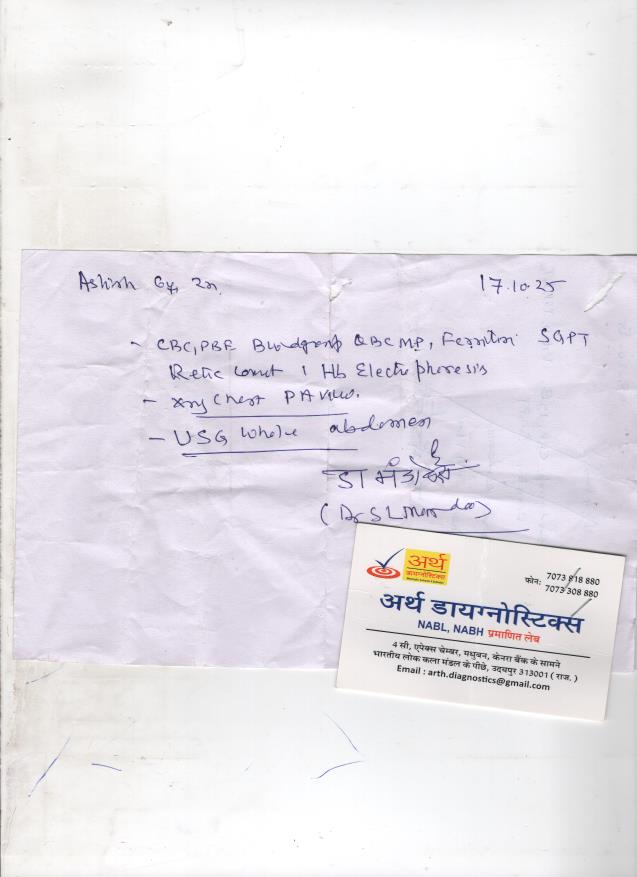 Ashish 17.10.25
- CBC, PBF Bloodgroup QBC MP, Ferritin SGPT
Retic Count, Hb Electrophoresis
- Xray Chest PA View.
- USG Whole abdomen
डा
(Dr S L
अर्थ
डायग्नोस्टिक्स
फोन: 7073 818 880
7073 308 880
अर्थ डायग्नोस्टिक्स
NABL, NABH प्रमाणित लेब
4 सी, एपेक्स चेम्बर, मधुबन, केनरा बैंक के सामने
भारतीय लोक कला मंडल के पीछे, उदयपुर 313001 ( राज. )
Email : arth.diagnostics@gmail.com